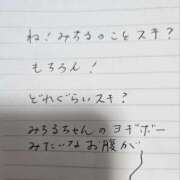 ね!みちるのことスキ?
もちろん!
どれぐらいスキ?
みちるちゃんのヨギボー
みたいなお腹が